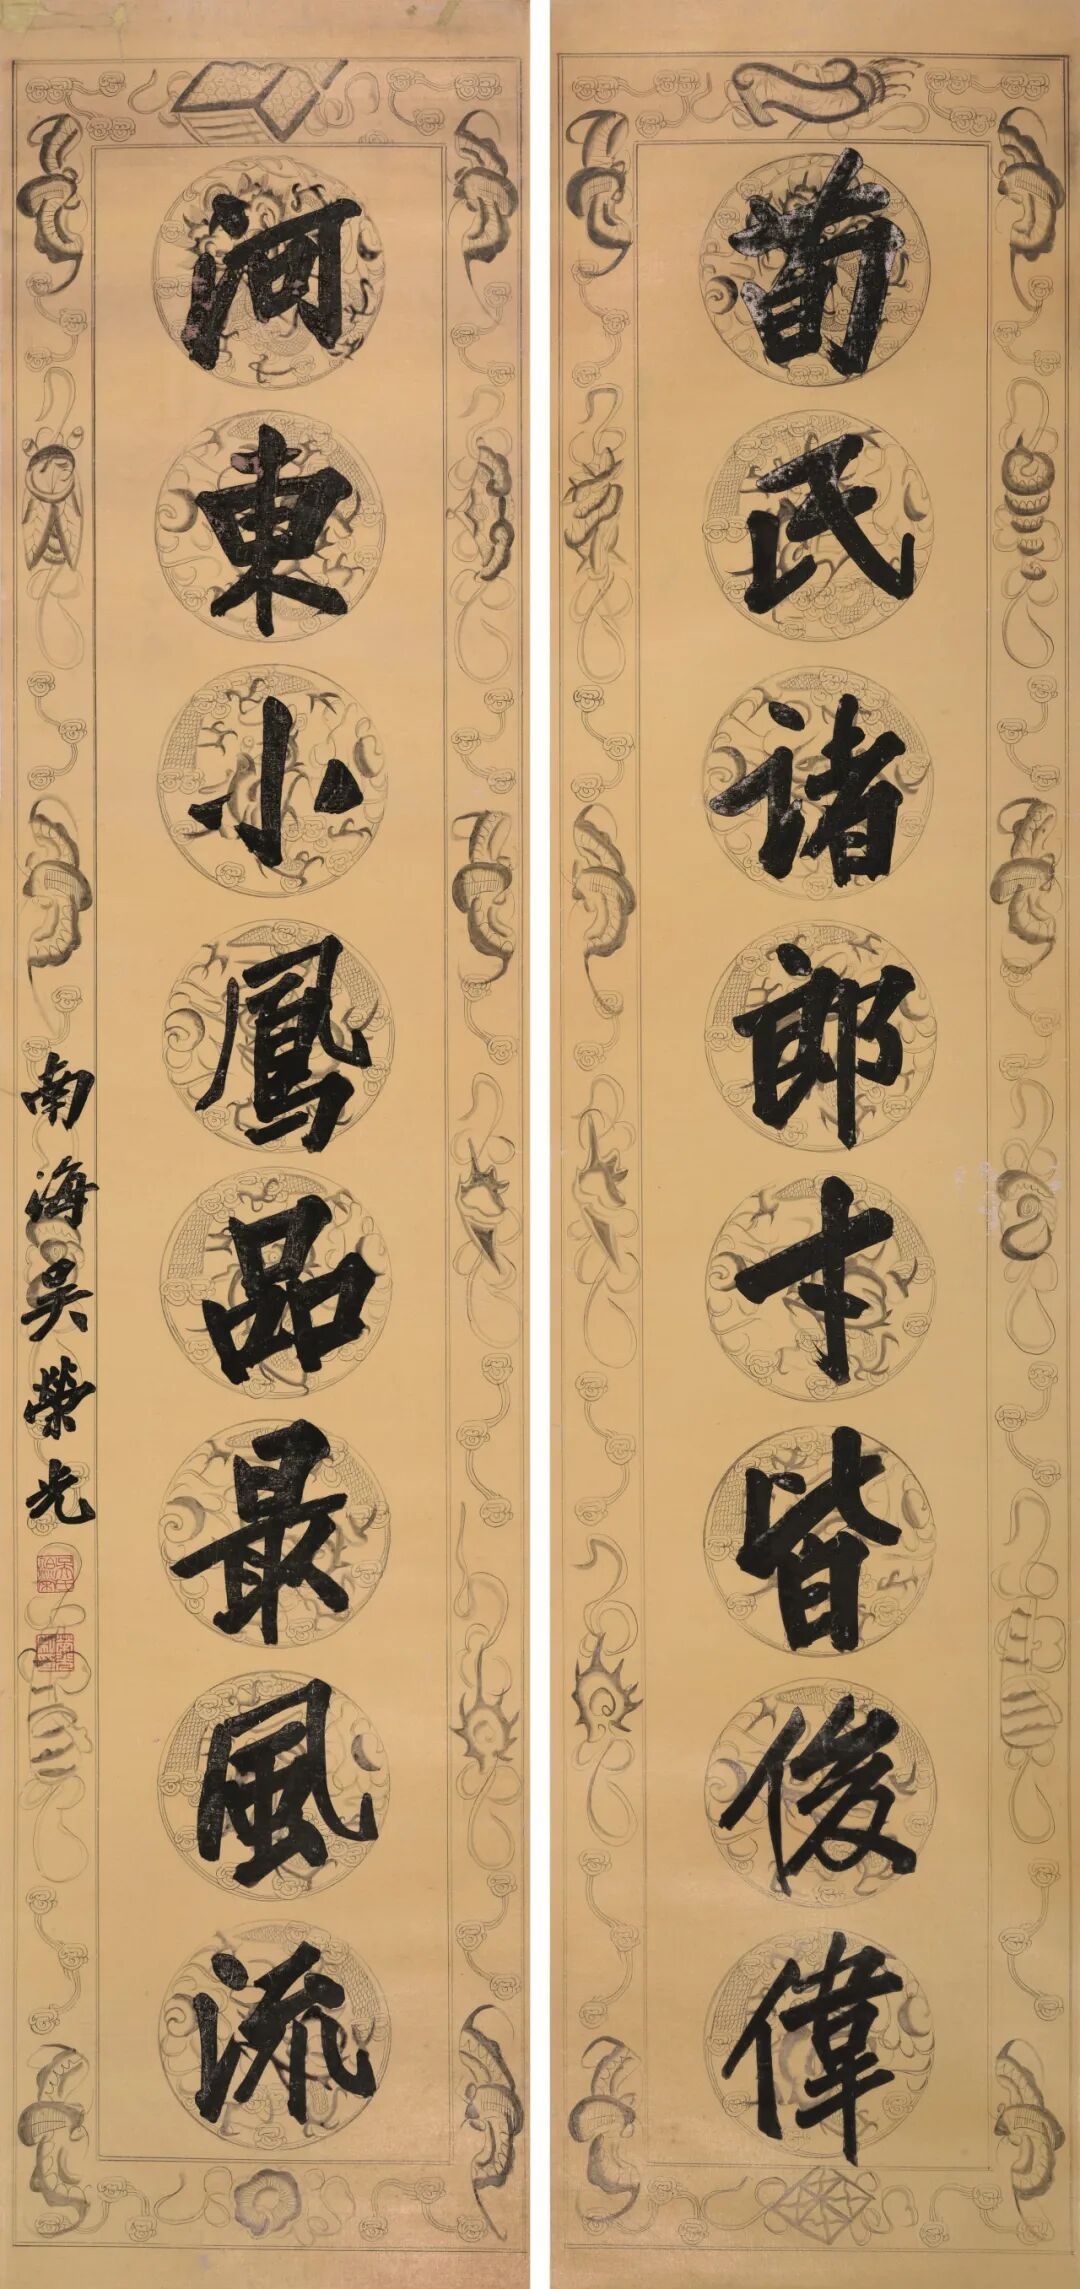 荀氏諸郎才皆俊偉
河東小鳳品最風流
南海吳榮光